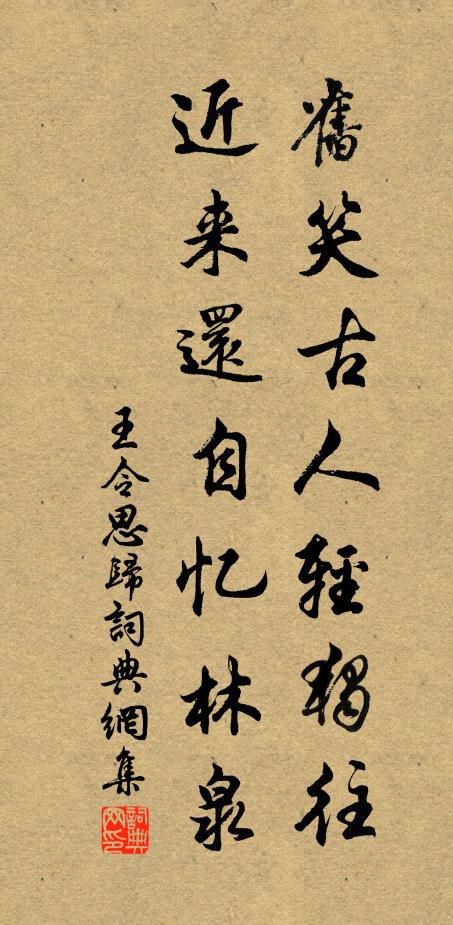 舊笑古人輕獨往
近来還自忆林泉
王令思歸詞典網集
詞典
网印